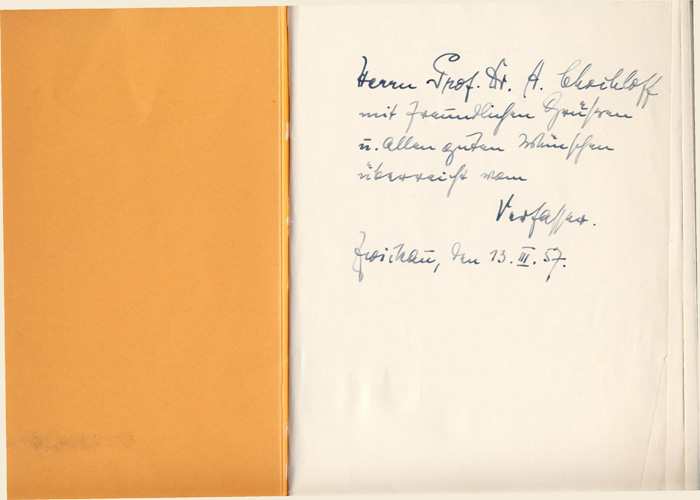 Herrn Prof. Dr. A. Chochloff
mit freundlichen Grüßen
u. allen guten Wünschen
überreicht vom
Verfasser.
Zwickau, den 13. III. 57.